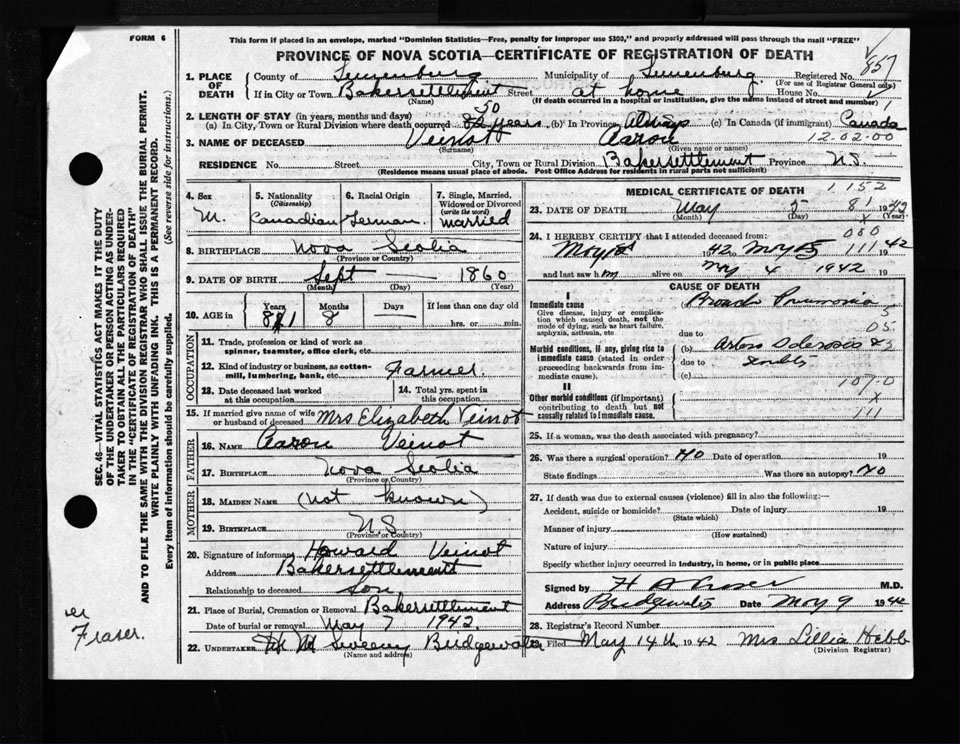 FORM 6
This form if placed in an envelope, marked "Dominion Statistics—Free, penalty for improper use $300," and properly addressed will pass through the mail "FREE"
PROVINCE OF NOVA SCOTIA—CERTIFICATE OF REGISTRATION OF DEATH
857
1. PLACE OF DEATH County of Lunenburg Municipality of Lunenburg Registered No.
(For use of Registrar General only)
If in City or Town Bakersettlement Street at home House No.
(Name) (If death occurred in a hospital or institution, give the name instead of street and number)
50
2. LENGTH OF STAY (in years, months and days)
(a) In City, Town or Rural Division where death occurred 82 years (b) In Province Always (c) In Canada (if immigrant) Canada
12-02-00
3. NAME OF DECEASED Veinot Aaron
(Surname) (Given name or names)
RESIDENCE No. Street City, Town or Rural Division Bakersettlement Province N.S.
(Residence means usual place of abode. Post Office Address for residents in rural parts not sufficient)
4. Sex M.
5. Nationality (Citizenship) Canadian
6. Racial Origin German
7. Single, Married, Widowed or Divorced (write the word) married
8. BIRTHPLACE Nova Scotia
(Province or Country)
9. DATE OF BIRTH Sept — 1860
(Month) (Day) (Year)
10. AGE in Years 81 Months 8 Days — If less than one day old
hrs. or min.
OCCUPATION
11. Trade, profession or kind of work as spinner, teamster, office clerk, etc.
12. Kind of industry or business, as cotton-mill, lumbering, bank, etc. Farmer
13. Date deceased last worked at this occupation
14. Total yrs. spent in this occupation
15. If married give name of wife or husband of deceased Mrs Elizabeth Veinot
FATHER
16. NAME Aaron Veinot
17. BIRTHPLACE Nova Scotia
(Province or Country)
MOTHER
18. MAIDEN NAME (not known)
19. BIRTHPLACE N.S.
(Province or Country)
20. Signature of informant Howard Veinot
Address Bakersettlement
Relationship to deceased son
21. Place of Burial, Cremation or Removal Bakersettlement
Date of burial or removal May 7 1942
22. UNDERTAKER Sweeny Bridgewater
(Name and address)
MEDICAL CERTIFICATE OF DEATH
1152
23. DATE OF DEATH May 5 1942
(Month) (Day) (Year)
24. I HEREBY CERTIFY that I attended deceased from:
May 42 May 5 42
and last saw him alive on May 4 1942 19
CAUSE OF DEATH
I
Immediate cause
Give disease, injury or complication which caused death, not the mode of dying, such as heart failure, asphyxia, asthenia, etc.
Broncho Pneumonia
due to
Morbid conditions, if any, giving rise to immediate cause (stated in order proceeding backwards from immediate cause).
(b) Arterio Sclerosis &
due to
(c)
107-0
II
Other morbid conditions (if important) contributing to death but not causally related to immediate cause
111
25. If a woman, was the death associated with pregnancy?
26. Was there a surgical operation? No Date of operation 19
State findings Was there an autopsy? No
27. If death was due to external causes (violence) fill in also the following:—
Accident, suicide or homicide? Date of injury 19
(State which)
Manner of injury
(How sustained)
Nature of injury
Specify whether injury occurred in industry, in home, or in public place
Signed by M.D.
Address Bridgewater Date May 9 1942
28. Registrar's Record Number
29. Filed May 14th 1942 Mrs Lillia Hebb
(Division Registrar)
SEC. 46—VITAL STATISTICS ACT MAKES IT THE DUTY
OF THE UNDERTAKER OR PERSON ACTING AS UNDER-
TAKER TO OBTAIN ALL THE PARTICULARS REQUIRED
IN THE "CERTIFICATE OF REGISTRATION OF DEATH"
AND TO FILE THE SAME WITH THE DIVISION REGISTRAR WHO SHALL ISSUE THE BURIAL PERMIT.
WRITE PLAINLY WITH UNFADING INK. THIS IS A PERMANENT RECORD.
Every item of information should be carefully supplied. (See reverse side for instructions.)
er
Fraser.